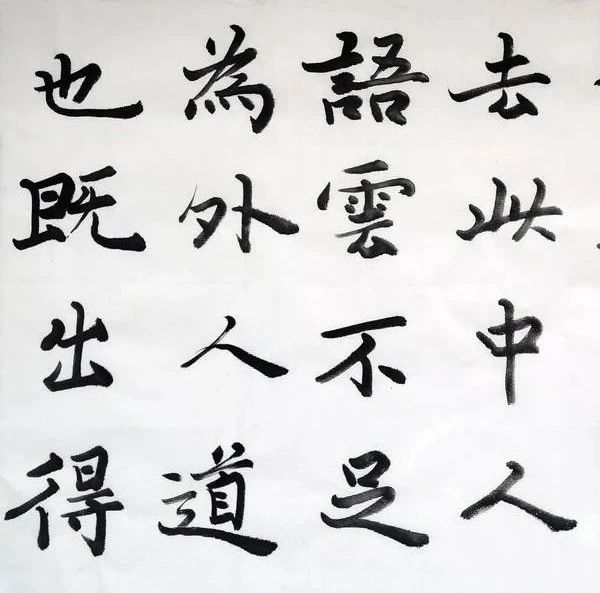 去此中人
語雲不足
為外人道
也既出得